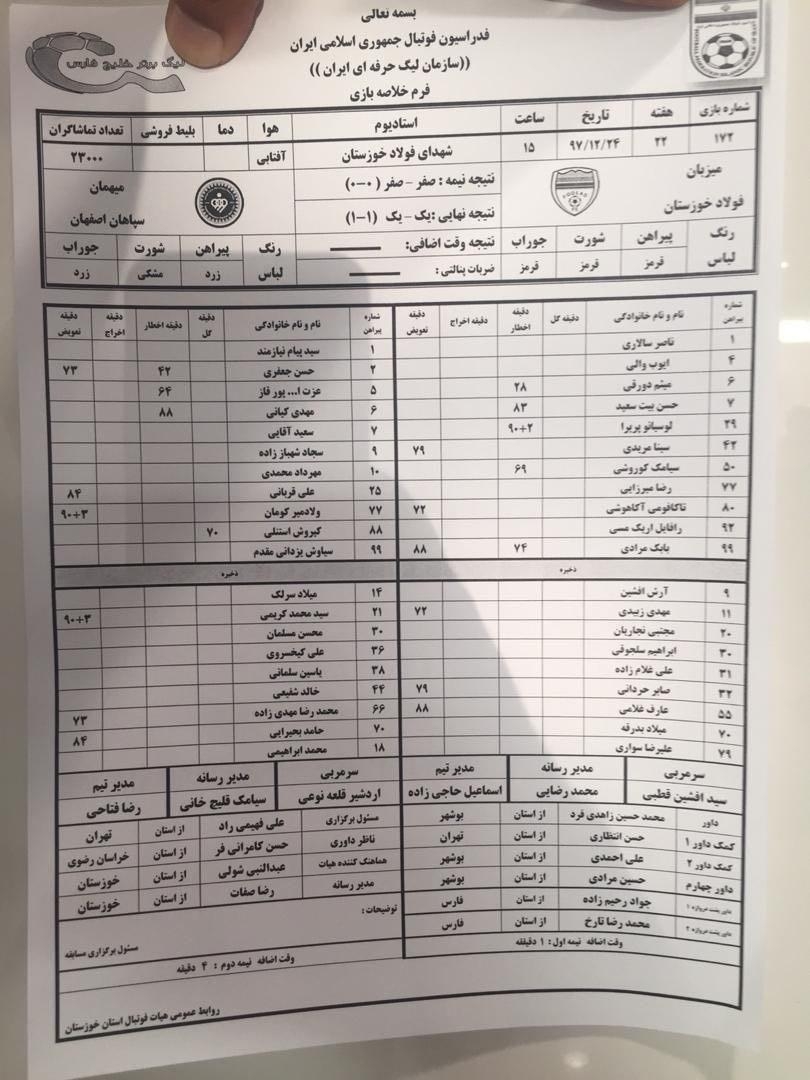 بسمه تعالی
فدراسیون فوتبال جمهوری اسلامی ایران
((سازمان لیگ حرفه ای ایران))
فرم خلاصه بازی
لیگ برتر خلیج فارس
شماره بازی هفته تاریخ ساعت استادیوم هوا دما بلیط فروشی تعداد تماشاگران
۱۷۲ ۲۲ ۹۷/۱۲/۲۴ ۱۵ شهدای فولاد خوزستان آفتابی ۲۳۰۰۰
میزبان نتیجه نیمه : صفر - صفر (۰-۰) میهمان
فولاد خوزستان نتیجه نهایی : یک - یک (۱-۱) سپاهان اصفهان
رنگ پیراهن شورت جوراب نتیجه وقت اضافی: رنگ پیراهن شورت جوراب
لباس قرمز قرمز قرمز ضربات پنالتی : لباس زرد مشکی زرد
شماره پیراهن نام و نام خانوادگی دقیقه گل دقیقه اخطار دقیقه اخراج دقیقه تعویض
۱ ناصر سالاری
۴ ایوب والی
۶ میثم دورقی ۲۸
۷ حسن بیت سعید ۸۳
۲۹ لوسیانو پریرا ۹۰+۲
۴۲ سینا مریدی ۷۹
۵۰ سیامک کوروشی ۶۹
۷۷ رضا میرزایی
۸۰ تاکافومی آکاهوشی ۷۲
۹۲ رافایل اریک مسی
۹۹ بابک مرادی ۷۴ ۸۸
ذخیره
۹ آرش افشین
۱۱ مهدی زبیدی ۷۲
۲۰ مجتبی نجاریان
۳۰ ابراهیم سلجوقی
۳۱ علی غلام زاده
۳۲ صابر حردانی ۷۹
۵۵ عارف غلامی ۸۸
۷۰ میلاد بدرقه
۷۹ علیرضا سواری
سرمربی مدیر رسانه مدیر تیم
سید افشین قطبی محمد رضایی اسماعیل حاجی زاده
شماره پیراهن نام و نام خانوادگی دقیقه گل دقیقه اخطار دقیقه اخراج دقیقه تعویض
۱ سید پیام نیازمند
۲ حسن جعفری ۴۲ ۷۳
۵ عزت ا... پور قاز ۶۴
۶ مهدی کیانی ۸۸
۷ سعید آقایی
۹ سجاد شهباز زاده
۱۰ مهرداد محمدی
۲۵ علی قربانی ۸۴
۷۷ ولادمیر کومان ۹۰+۳
۸۸ کیروش استنلی ۷۰
۹۹ سیاوش یزدانی مقدم
ذخیره
۱۴ میلاد سرلک
۲۱ سید محمد کریمی ۹۰+۳
۳۰ محسن مسلمان
۳۶ علی کیخسروی
۳۸ یاسین سلمانی
۴۴ خالد شفیعی
۶۶ محمد رضا مهدی زاده ۷۳
۷۰ حامد بحیرایی ۸۴
۱۸ محمد ابراهیمی
سرمربی مدیر رسانه مدیر تیم
اردشیر قلعه نوعی سیامک قلیچ خانی رضا فتاحی
داور محمد حسین زاهدی فرد از استان بوشهر
کمک داور ۱ حسن انتظاری از استان تهران
کمک داور ۲ علی احمدی از استان بوشهر
داور چهارم حسین مرادی از استان بوشهر
داور پشت دروازه ۱ جواد رحیم زاده از استان فارس
داور پشت دروازه ۲ محمد رضا تارخ از استان فارس
وقت اضافه نیمه اول : ۱ دقیقه
مسئول برگزاری علی فهیمی راد از استان تهران
ناظر داوری حسن کامرانی فر از استان خراسان رضوی
هماهنگ کننده هیات عبدالنبی شولی از استان خوزستان
مدیر رسانه رضا صفات از استان خوزستان
توضیحات :
مسئول برگزاری مسابقه
وقت اضافه نیمه دوم : ۴ دقیقه
روابط عمومی هیات فوتبال استان خوزستان